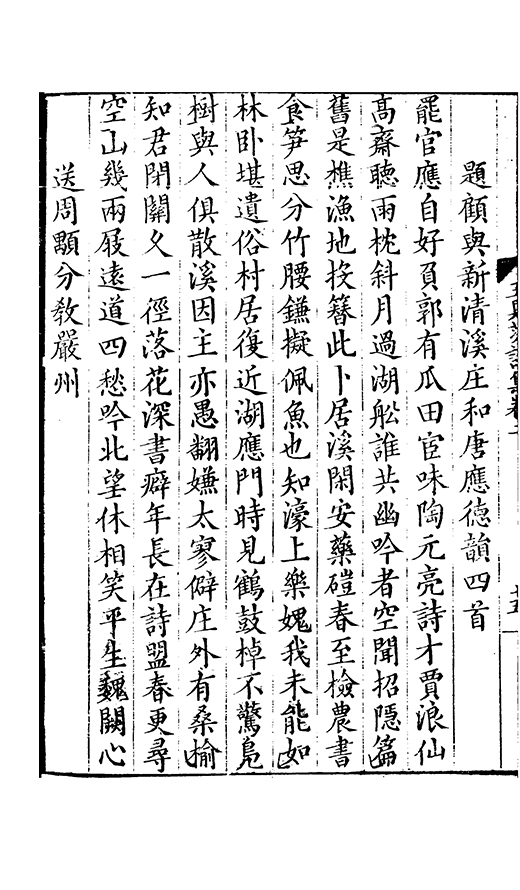 題顧與新清溪庄和唐應德韻四首
罷官應自好負郭有瓜田宦味陶元亮詩才賈浪仙
高齋聽雨枕斜月過湖舩誰共幽吟者空聞招隱篇
舊是樵漁地投簪此卜居溪閑安藥磑春至檢農書
食笋思分竹腰鎌擬佩魚也知濠上樂媿我未能如
林卧堪遺俗村居復近湖應門時見鶴鼓棹不驚鳬
樹與人俱散溪因主亦愚翻嫌太寥僻庄外有桑榆
知君閉關久一徑落花深書癖年長在詩盟春更尋
空山幾兩屐遠道四愁吟北望休相笑平生魏闕心
送周顯分敎嚴州